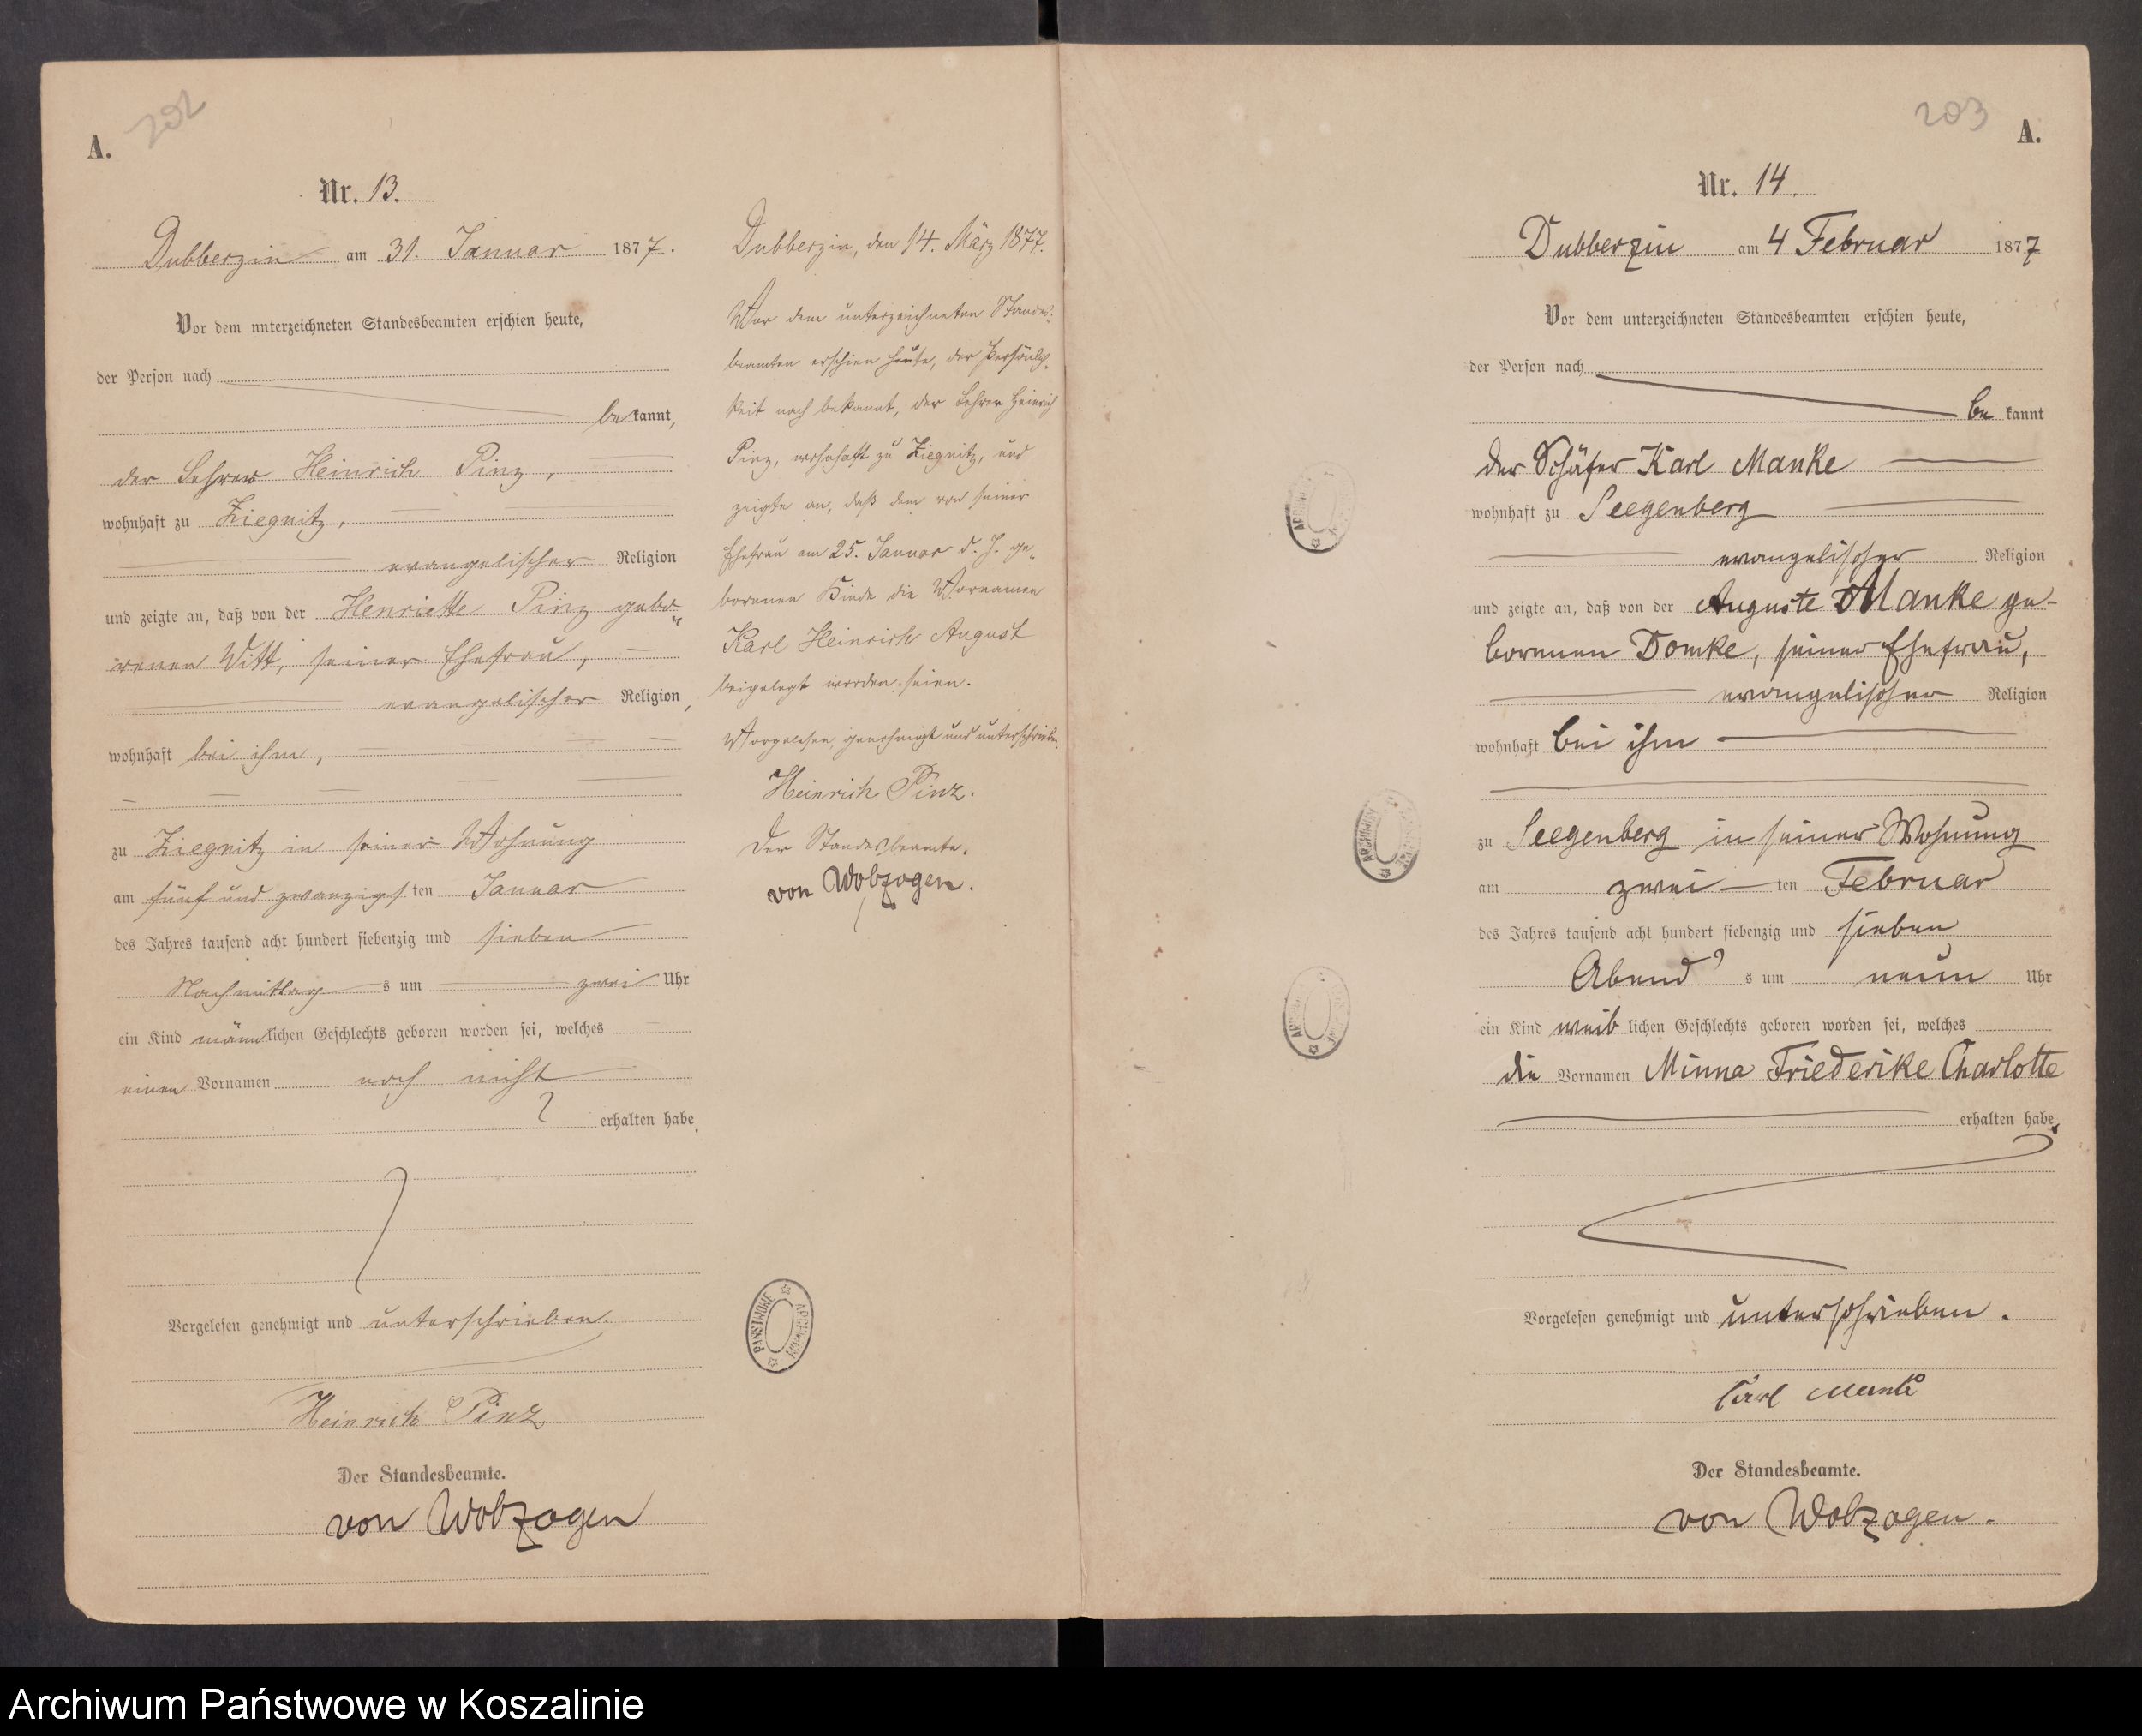 A.
202
Nr. 13.
Dubberzin am 31. Januar 1877.
Vor dem nnterzeichneten Standesbeamten erschien heute,
der Person nach
bekannt,
der Lehrer Heinrich Pinz,
wohnhaft zu Ziegnitz,
evangelischer Religion
und zeigte an, daß von der Henriette Pinz gebo-
renen Witt, seiner Ehefrau,
evangelischer Religion,
wohnhaft bei ihm,
zu Ziegnitz in seiner Wohnung
am fünf und zwanzigsten Januar
des Jahres tausend acht hundert siebenzig und sieben
Nachmittags um zwei Uhr
ein Kind männlichen Geschlechts geboren worden sei, welches
einen Vornamen noch nicht
erhalten habe.
Vorgelesen genehmigt und unterschrieben.
Heinrich Pinz
Der Standesbeamte.
von Wobzogen
Dubberzin, den 14. März 1877.
Vor dem unterzeichneten Standes-
beamten erschien heute, der Persönlich-
keit nach bekannt, der Lehrer Heinrich
Pinz, wohnhaft zu Ziegnitz, und
zeigte an, daß dem von seiner
Ehefrau am 25. Januar d. J. ge-
borenen Kinde die Vornamen
Karl Heinrich August
beigelegt worden seien.
Vorgelesen, genehmigt und unterschrieben.
Heinrich Pinz.
Der Standesbeamte.
von Wobzogen.
PAŃSTWOWE ARCHIWUM
203
A.
Nr. 14.
Dubberzin am 4 Februar 1877
Vor dem unterzeichneten Standesbeamten erschien heute,
der Person nach
bekannt
der Schäfer Karl Manke
wohnhaft zu Seegenberg
evangelischer Religion
und zeigte an, daß von der Auguste Manke ge-
borenen Domke, seiner Ehefrau,
evangelischer Religion
wohnhaft bei ihm
zu Seegenberg in seiner Wohnung
am zwei ten Februar
des Jahres tausend acht hundert siebenzig und sieben
Abends um neun Uhr
ein Kind weiblichen Geschlechts geboren worden sei, welches
die Vornamen Minna Friederike Charlotte
erhalten habe.
Vorgelesen genehmigt und unterschrieben.
Carl Manke
Der Standesbeamte.
von Wobzogen.
Archiwum Państwowe w Koszalinie